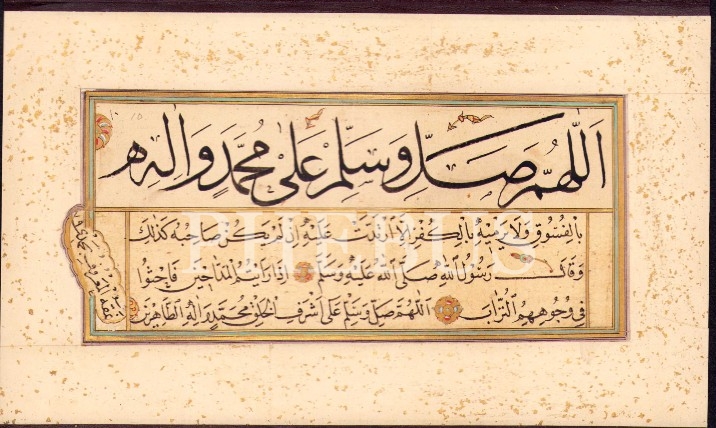 اَللّٰهُمَّ صَلِّ وَسَلِّمْ عَلٰى مُحَمَّدٍ وَاٰلِهِ
بِالْفُسُوقِ وَلَا يَرْمِيهِ بِالْكُفْرِ اِلَّا ارْتَدَّتْ عَلَيْهِ اِنْ لَمْ يَكُنْ صَاحِبُهُ كَذٰلِكَ
وَقَالَ رَسُولُ اللّٰهِ صَلَّى اللّٰهُ عَلَيْهِ وَسَلَّمَ اِذَا رَاَيْتُمُ الْمَدَّاحِينَ فَاحْثُوا
فِى وُجُوهِهِمُ التُّرَابَ اَللّٰهُمَّ صَلِّ وَسَلِّمْ عَلٰى اَشْرَفِ الْخَلْقِ مُحَمَّدٍ وَاٰلِهِ الطَّاهِرِينَ
PHEBUS